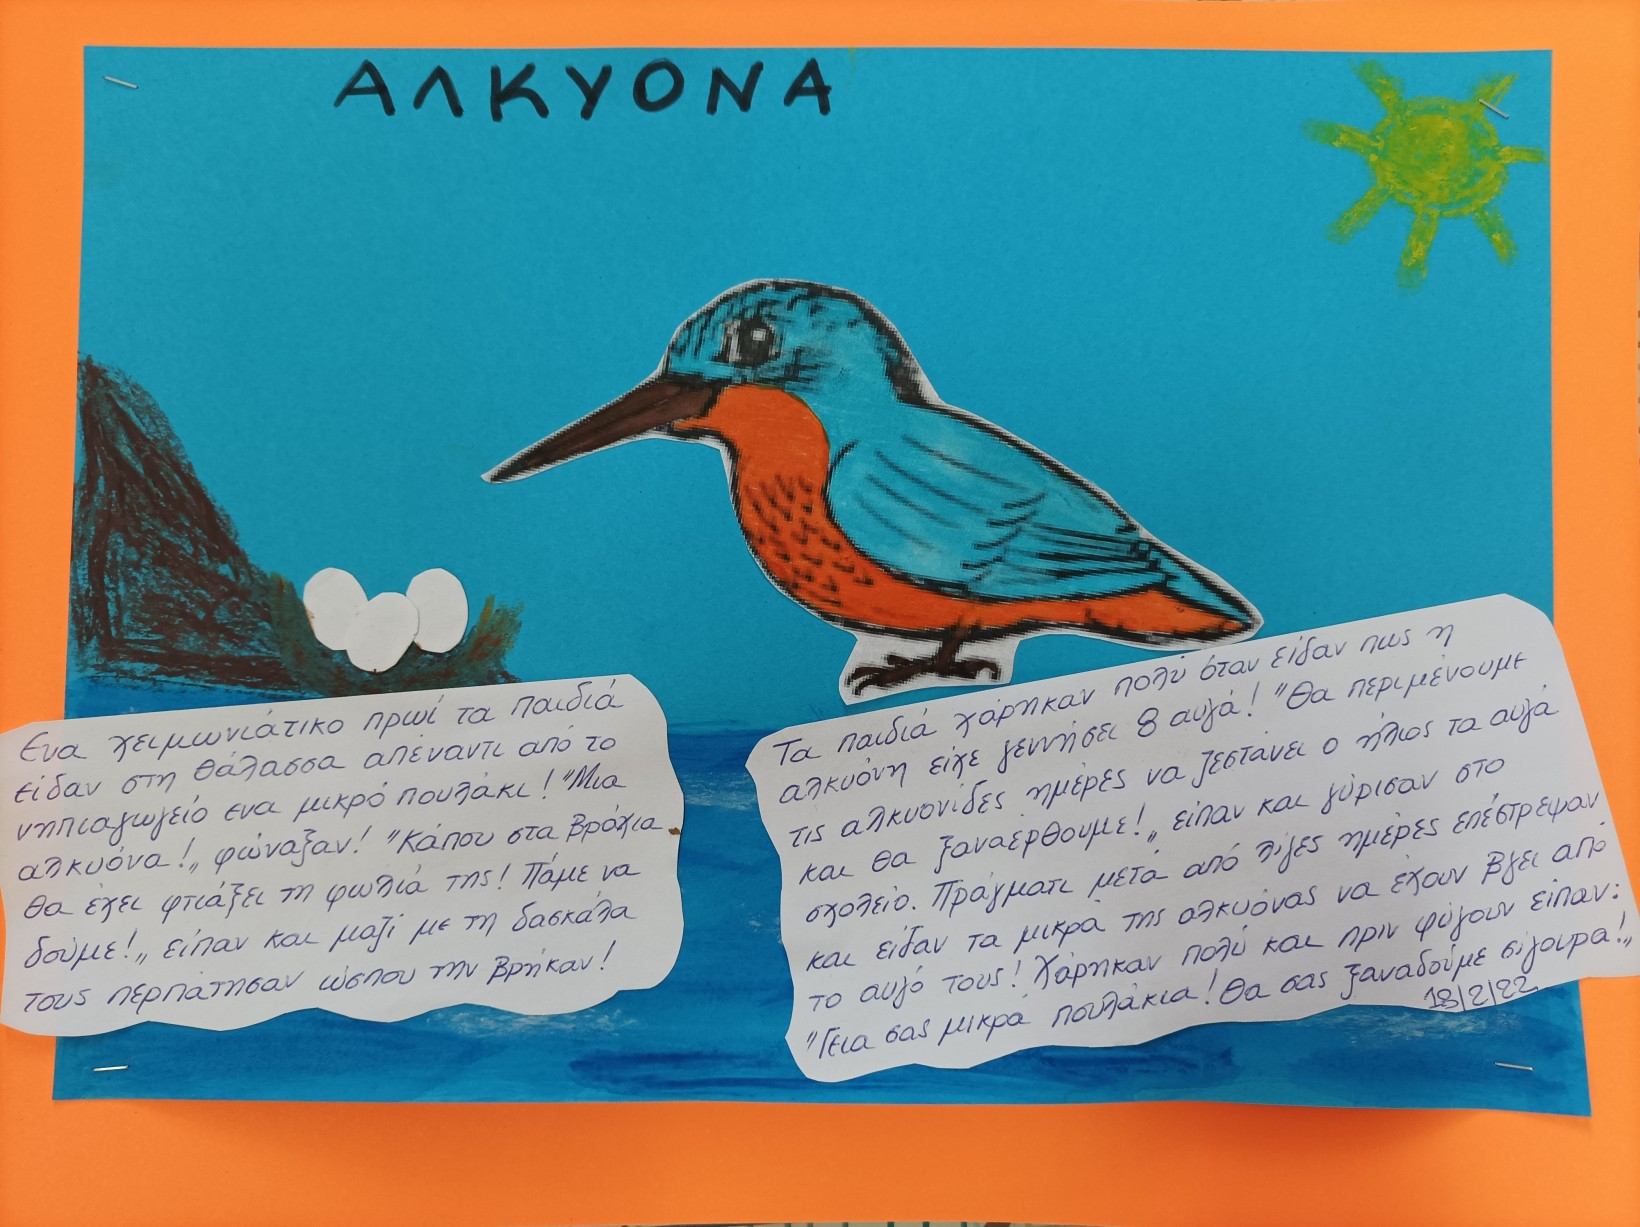 ΑΛΚΥΟΝΑ
Ενα χειμωνιάτικο πρωί τα παιδιά
είδαν στη θάλασσα απέναντι από το
νηπιαγωγείο ενα μικρό πουλάκι! "Μια
αλκυόνα!„ φώναξαν! "Κάπου στα βράχια
θα έχει φτιάξει τη φωλιά της! Πάμε να
δούμε!„ είπαν και μαζί με τη δασκάλα
τους περπάτησαν ώσπου την βρήκαν!
Τα παιδιά χάρηκαν πολύ όταν είδαν πως η
αλκυόνη είχε γεννήσει 8 αυγά! "Θα περιμένουμε
τις αλκυονίδες ημέρες να ζεστάνει ο ήλιος τα αυγά
και θα ξαναέρθουμε!„ είπαν και γύρισαν στο
σχολείο. Πράγματι μετά από λίγες ημέρες επέστρεψαν
και είδαν τα μικρά της αλκυόνας να έχουν βγει από
το αυγό τους! Χάρηκαν πολύ και πριν φύγουν είπαν:
"Γεια σας μικρά πουλάκια! Θα σας ξαναδούμε σίγουρα!„
18/2/22